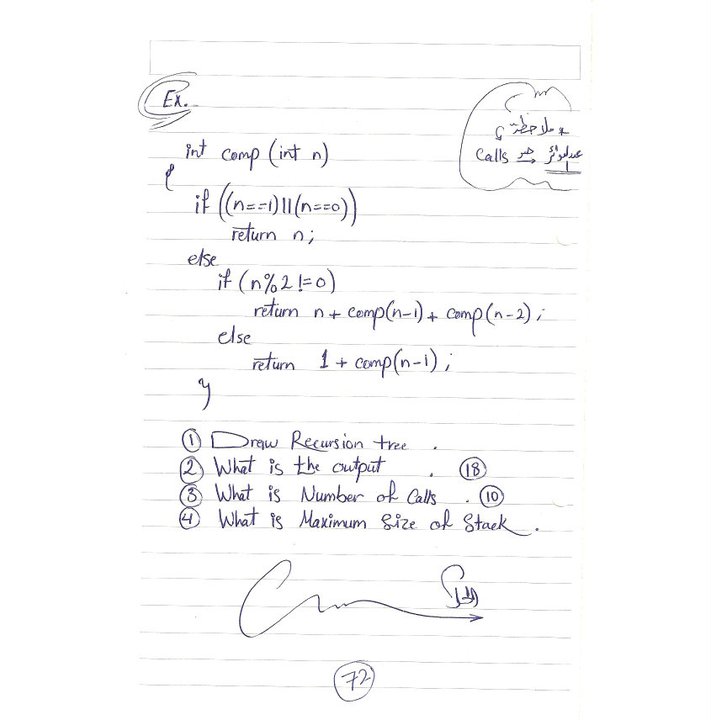 Ex.
* ملاحظة
calls
int comp (int n)
{
if ((n==1)||(n==0))
return n;
else
if (n%2!=0)
return n + comp(n-1) + comp(n-2);
else
return 1 + comp(n-1);
}
① Draw Recursion tree.
② What is the output. ⑱
③ What is Number of Calls. ⑩
④ What is Maximum Size of Stack.
الحل
72